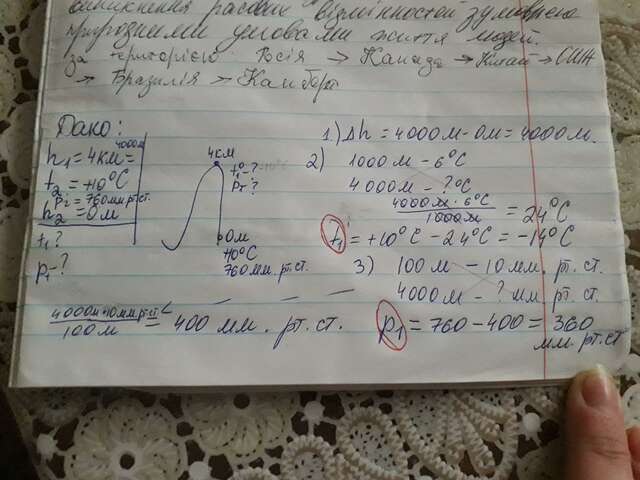 виникнення расових відмінностей зумовлено
природними умовами життя людей.
за територією Росія → Канада → Китай → США
→ Бразилія →
Дано:
h₁ = 4км =
4000м
t₂ = +10°C
p₂ = 760мм рт.ст.
h₂ = 0м
t₁ ?
p₁ - ?
4км
t₁° - ?
p₁ - ?
0м
+10°C
760 мм. рт. ст.
1) Δh = 4000м - 0м = 4000м.
2) 1000м - 6°C
4000м - ?°C
4000м · 6°C
1000м
= 24°C
t₁ = +10°C - 24°C = -14°C
3) 100м - 10мм. рт. ст.
4000м - ? мм рт. ст.
4000м·10мм рт.ст
100м
= 400 мм. рт. ст.
p₁ = 760 - 400 = 360
мм. рт. ст